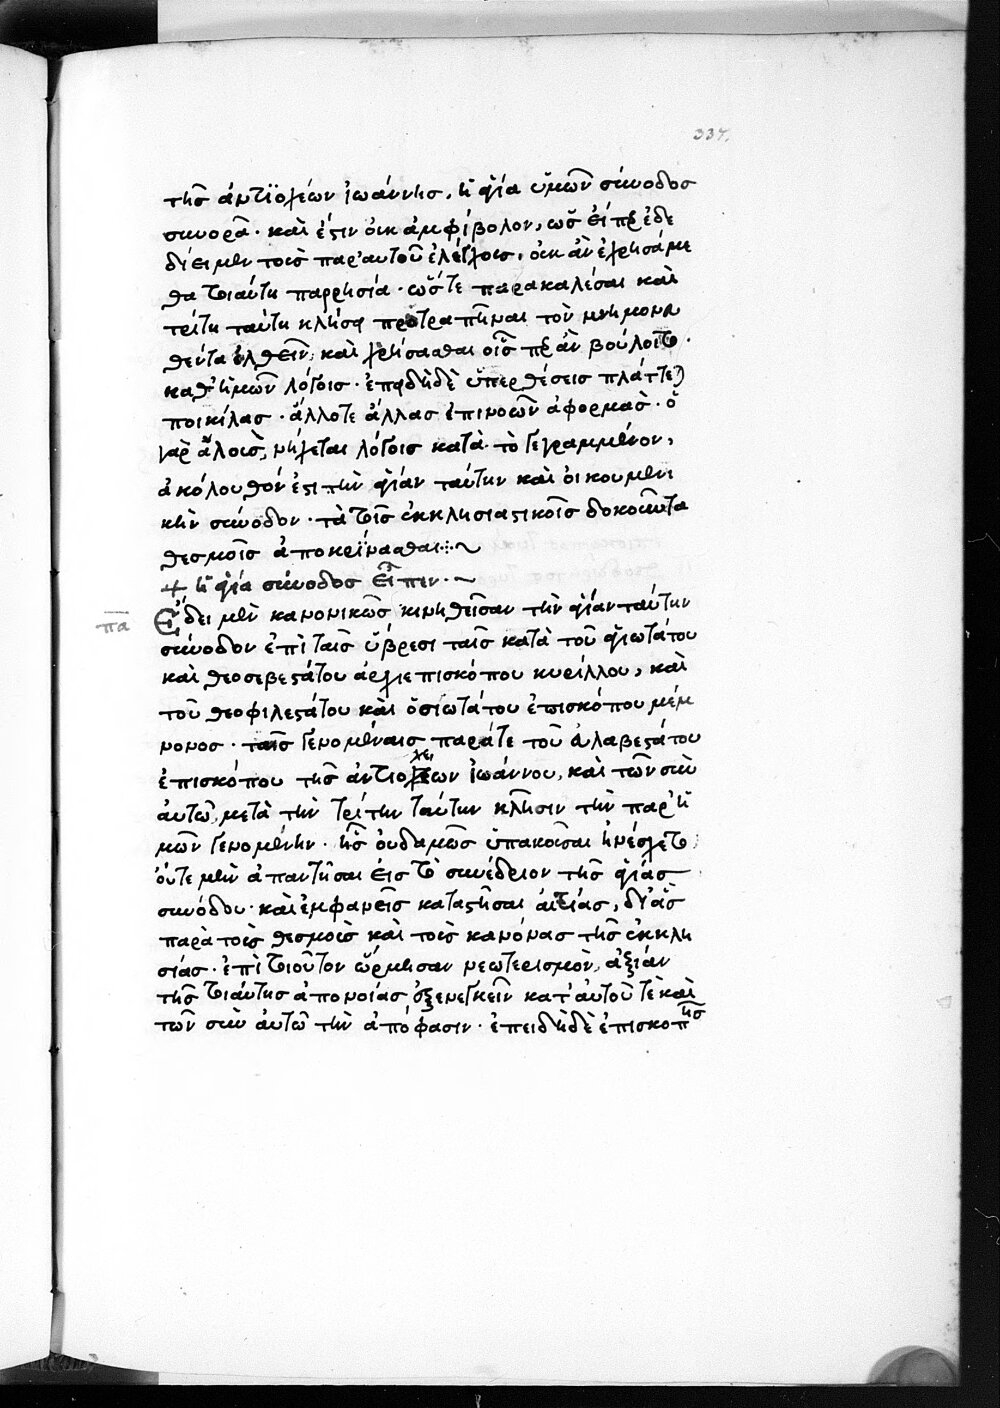 337.
τῆς ἀντιοχέων ἰωάννης, ἡ ἁγία ὑμῶν σύνοδος
συνορᾷ· καὶ ἔστιν οὐκ ἀμφίβολον, ὡς εἴπερ ἐδε
δίει μὲν τοῖς παρ' αὐτοῦ ἐλέγχοις, οὐκ ἂν ἐχρησάμε
θα τοιαύτη παρρησία· ὥστε παρακαλέσαι καὶ
τρίτη ταύτη κλήσει προτραπῆναι τὸν μνημονευ
θέντα ἐλθεῖν, καὶ χρήσασθαι οἷς περ ἂν βούλοιτο·
καθ' ἡμῶν λόγοις· ἐπειδὴ δὲ ὑπερθέσεις πλάττεται
ποικίλας· ἄλλοτε ἄλλας ἐπινοῶν ἀφορμάς· ὁ
γὰρ ἁλοὺς, μάχεται λόγοις κατὰ τὸ γεγραμμένον,
ἀκόλουθόν ἐστι τὴν ἁγίαν ταύτην καὶ οἰκουμενι
κὴν σύνοδον· τὰ τοῖς ἐκκλησιαστικοῖς δοκοῦντα
θεσμοῖς ἀποκρίνασθαι:~
+ ἡ ἁγία σύνοδος εἶπεν·~
πα
Ἔδει μὲν κανονικῶς κινηθεῖσαν τὴν ἁγίαν ταύτην
σύνοδον ἐπὶ ταῖς ὕβρεσι ταῖς κατὰ τοῦ ἁγιωτάτου
καὶ θεοσεβεστάτου ἀρχιεπισκόπου κυρίλλου, καὶ
τοῦ θεοφιλεστάτου καὶ ὁσιωτάτου ἐπισκόπου μέμ
νονος· ταῖς γενομέναις παρά τε τοῦ εὐλαβεστάτου
ἐπισκόπου τῆς ἀντιοχέων ἰωάννου, καὶ τῶν σὺν
αὐτῶ, μετὰ τὴν τρίτην ταύτην κλῆσιν τὴν παρ' ἡ
μῶν γενομένην· ἧς οὐδαμῶς ὑπακοῦσαι ἠνέσχετο,
οὔτε μὴν ἀπαντῆσαι εἰς τὸ συνέδριον τῆς ἁγίας
συνόδου· καὶ ἐμφανεῖς καταστῆσαι αἰτίας, δι' ἃς
παρὰ τοὺς θεσμοὺς καὶ τοὺς κανόνας τῆς ἐκκλη
σίας· ἐπὶ τοιοῦτον ὥρμησαν νεωτερισμὸν, ἀξίαν
τῆς τοιαύτης ἀπονοίας ἐξενεγκεῖν κατ' αὐτοῦ τὲ καὶ
τῶν σὺν αὐτῶ τὴν ἀπόφασιν· ἐπειδὴ δὲ ἐπισκοπῆς